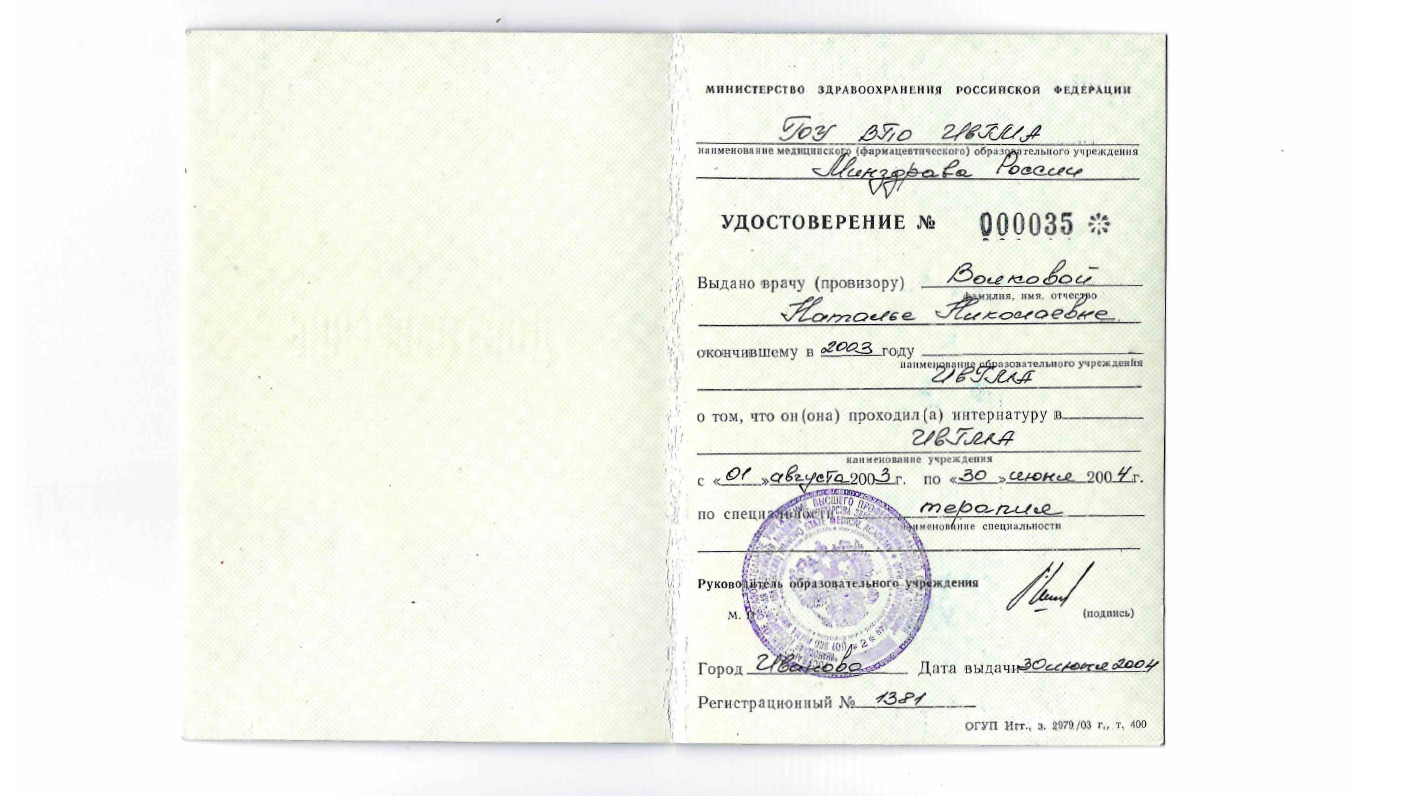 МИНИСТЕРСТВО ЗДРАВООХРАНЕНИЯ РОССИЙСКОЙ ФЕДЕРАЦИИ
ГОУ ВПО ИвГМА
наименование медицинского (фармацевтического) образовательного учреждения
Минздрава России
УДОСТОВЕРЕНИЕ № 000035 *
Выдано врачу (провизору) Волковой
фамилия, имя, отчество
Наталье Николаевне
окончившему в 2003 году
наименование образовательного учреждения
ИвГМА
о том, что он (она) проходил(а) интернатуру в
ИвГМА
наименование учреждения
с «01» августа 2003 г. по «30» июня 2004 г.
по специальности терапия
наименование специальности
Руководитель образовательного учреждения
М. П.
(подпись)
Город Иваново Дата выдачи 30 июня 2004
Регистрационный № 1381
ОГУП Игт., з. 2979/03 г., т. 400